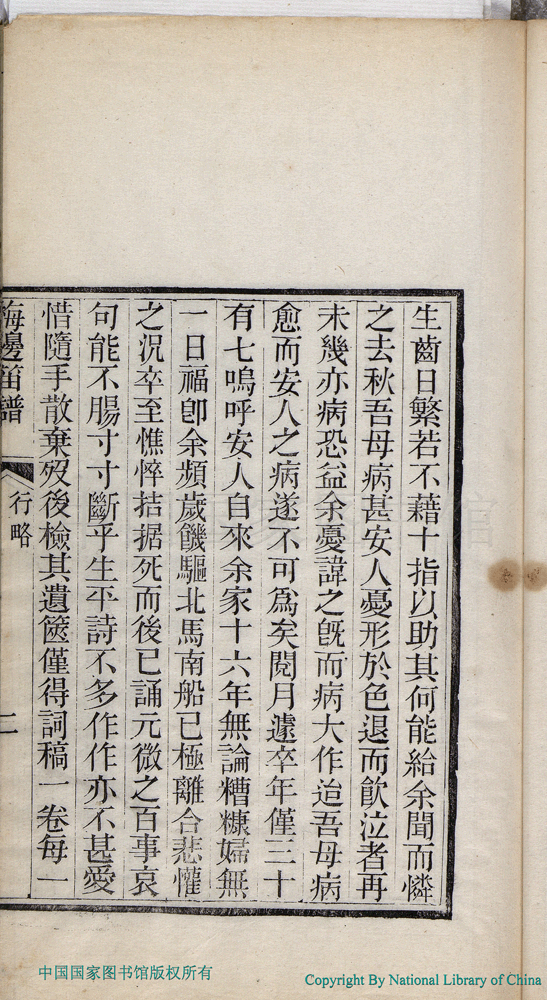 生齒日繁若不藉十指以助其何能給余聞而憐
之去秋吾母病甚安人憂形於色退而飲泣者再
未幾亦病恐益余憂諱之旣而病大作迨吾母病
愈而安人之病遂不可爲矣閱月遽卒年僅三十
有七嗚呼安人自來余家十六年無論糟糠婦無
一日福卽余頻歲饑驅北馬南船已極離合悲懽
之況卒至憔悴拮据死而後已誦元微之百事哀
句能不腸寸寸斷乎生平詩不多作作亦不甚愛
惜隨手散棄歿後檢其遺篋僅得詞稿一卷每一
梅邊笛譜
行略
二
中国国家图书馆版权所有
Copyright By National Library of China